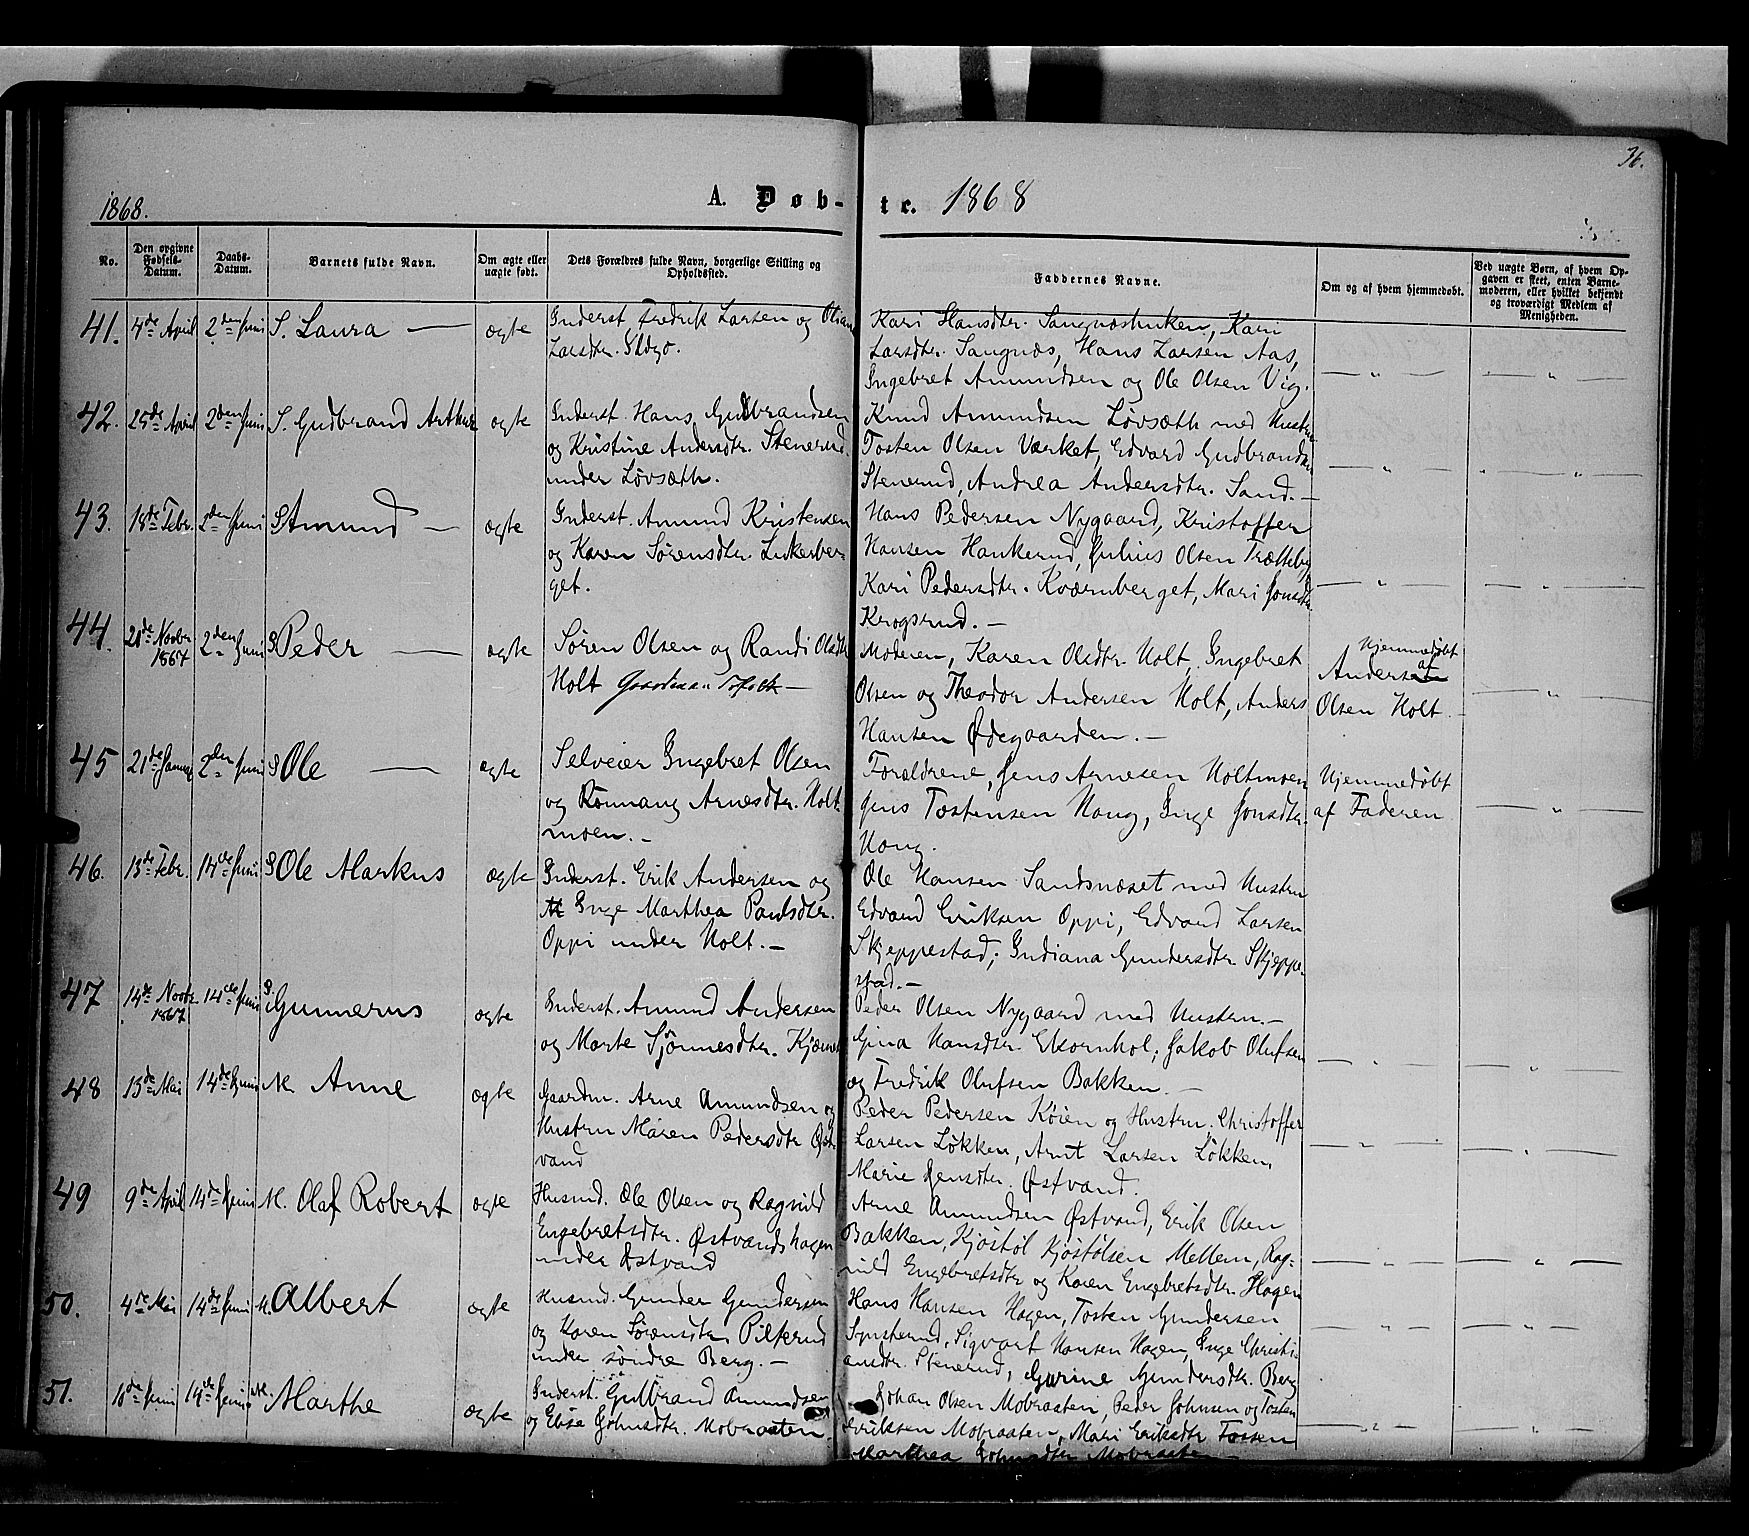 36.
1868.
A. Døb-
te. 1868
No.
Den opgivne Fødsels-Datum.
Daabs-Datum.
Barnets fulde Navn.
Om ægte eller uægte født.
Dets Forældres fulde Navn, borgerlige Stilling og Opholdssted.
Faddernes Navne.
Om og af hvem hjemmedøbt.
Ved uægte Børn, af hvem Op-
gaven er skeet, enten Barne-
moderen, eller hvilket bekjendt
og troværdigt Medlem af
Menigheden.
41. 4de April 2den Juni S. Laura — ægte
Inderst Fredrik Larsen og
Larsdtr.
Kari Hansdtr. Kari
Larsdtr. Sangnæs, Hans Larsen Aas,
Ingebret Amundsen og Ole Olsen Vig.
— " — — " —
42. 25de April 2den Juni S. Gudbrand Arthur ægte
Inderst. Hans Gudbrandsen
og Kristine Andersdtr. Stenerud
under Løvsæth.
Knud Amundsen Løvsæth med Hustru
Tosten Olsen Værket, Edvard Gudbrandsen
Stenerud, Andrea Andersdtr. Sand. —
— " — — " —
43. 18de Febr. 2den Juni S Amund — ægte
Inderst. Amund Kristensen
og Karen Sørensdtr. Lukerber-
get.
Hans Pedersen Nygaard, Kristoffer
Hansen Haukerud, Julius Olsen Trætteby
Kari Pedersdtr. Kværnberget, Mari Jonsdtr.
Krogsrud. —
— " — — " —
44. 20de Novbr 1867 2den Juni S Peder — ægte
Søren Olsen og Randi Olsdtr
Holt —
Moderen, Karen Olsdtr. Holt, Ingebret
Olsen og Theodor Andersen Holt, Anders
Hansen Ødegaarden. —
Hjemmedøbt
af
Anders
Olsen Holt.
— " —
45 21de Januar 2den Juni S Ole — ægte
Selveier Ingebret Olsen
og Rønnaug Arnesdtr. Holt
moen. —
Forældrene, Jens Arnesen Holtmoen
Jens Tostensen Haug, Inge Jonsdtr.
Haug.
Hjemmedøbt
af Faderen
— " —
46. 13de Febr. 14de Juni S Ole Markus ægte
Inderst. Erik Andersen og
Inge Marthea Paulsdtr.
Oppi under Holt. —
Ole Hansen Sandsnæset med Hustru
Edvard Eriksen Oppi, Edvard Larsen
Skjeppestad; Indiana Gundersdtr Skjeppe-
stad. —
47 14de Novbr 1867 14de Juni S. Gunnerus ægte
Inderst. Amund Andersen
og Marte Sjønnesdtr. Kjærnet
Peder Olsen Nygaard med Hustru. —
Gina Hansdtr. Ekornhol; Jakob Olufsen
og Fredrik Olufsen Bakken. —
— " — — " —
48 13de Mai 14de Juni M. Anne ægte
Gaardm. Arne Amundsen og
Hustru Maren Pedersdtr Øst-
vand
Peder Pedersen Køien og Hustru. Christoffer
Larsen Løkken, Arnt Larsen Løkken,
Marie Jensdtr. Østvand.
— " — — " —
49 9de April 14de Juni M. Olaf Robert ægte
Husmd. Ole Olsen og Ragnild
Engebretsdtr. Østvandshagen
under Østvand
Arne Amundsen Østvand, Erik Olsen
Bakken, Kjøstøl Kjøstølsen Mellem, Rag-
nild Engebretsdtr og Karen Engebretsdtr. Hagen
— " — — " —
50. 4de Mai 14de Juni M. Albert ægte
Husmd. Gunder Gundersen
og Karen Sørensdtr. Pilterud
under søndre Berg. —
Hans Hansen Hagen, Tosten Gundersen
Synsterud, Sigvart Hansen Hagen, Inge Christi-
ansdtr. Stenerud, Gurine Gundersdtr. Berg
— " — — " —
51. Juni 14de Juni M. Marthe ægte
Inderst. Gulbrand Amundsen
og Elise Johnsdtr. Mobraaten.
Johan Olsen Mobraaten, Peder Johnsen og Tosten
Eriksen Mobraaten, Mari Eriksdtr Fossen
Marthea Johnsdtr Mobraaten —
— " — — " —